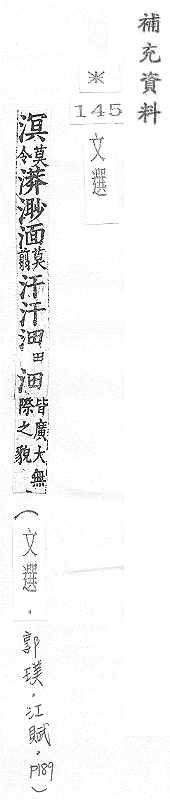 補充資料
※145文選
溟莫令漭渺湎莫翦汗汗沺田沺皆廣大無際之貌(文選.郭璞.江賦.P189)